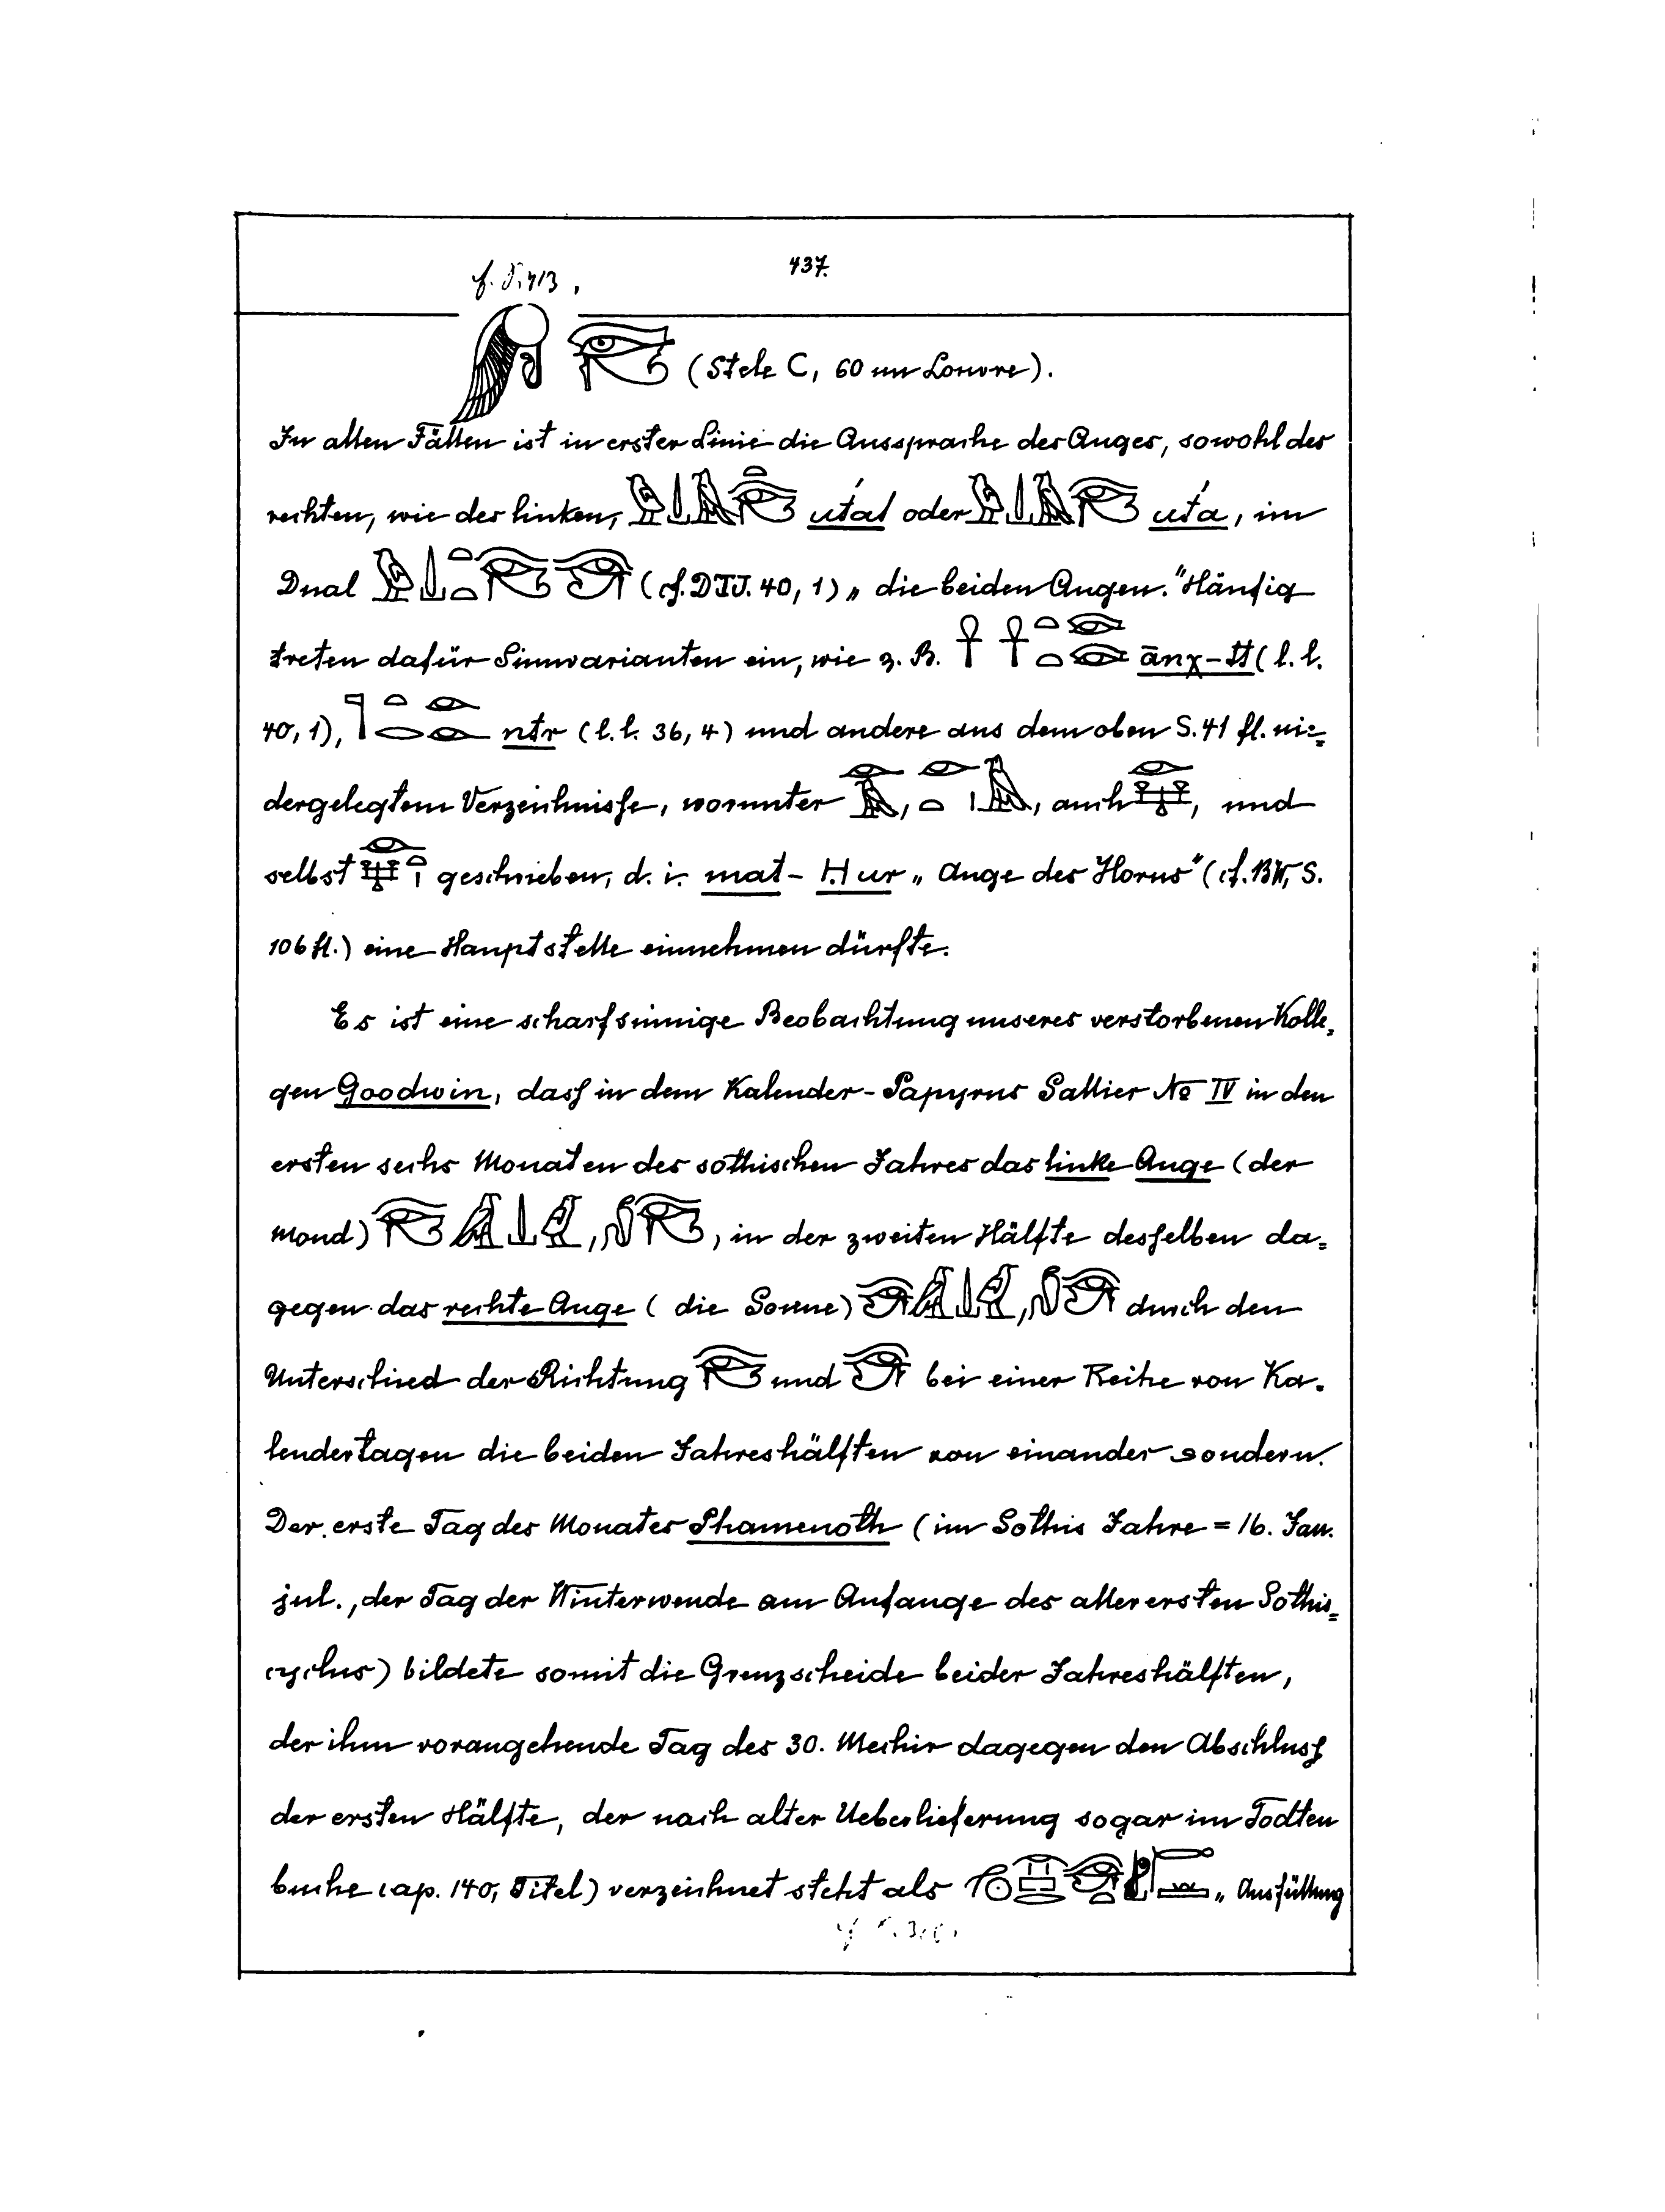 437.
f. S. 413.
(Stele C, 60 im Louvre).
In allen Fällen ist in erster Linie die Aussprache des Auges, sowohl des
rechten, wie des linken, 𓅱𓍑𓄿𓏏𓂀 ut́at oder 𓅱𓍑𓄿𓂀 ut́a, im
Dual (cf. DTI. 40, 1) „die beiden Augen." Häufig
treten dafür Sinnvarianten ein, wie z. B. 𓋹 𓋹 ānχ-tt (l. l.
40, 1), ntr (l. l. 36, 4) und andere aus dem oben S. 41 fl. nie=
dergelegtem Verzeichnisse, worunter , , auch , und
selbst geschrieben, d. i. mat-Hur „Auge des Horus" (cf. BW, S.
106 fl.) eine Hauptstelle einnehmen dürfte.
Es ist eine scharfsinnige Beobachtung unseres verstorbenen Kolle=
gen Goodwin, dass in dem Kalender-Papyrus Sallier No IV in den
ersten sechs Monaten des sothischen Jahres das linke Auge (der
Mond) , , in der zweiten Hälfte desselben da=
gegen das rechte Auge (die Sonne) , durch den
Unterschied der Richtung und bei einer Reihe von Ka=
lendertagen die beiden Jahreshälften von einander sondern.
Der erste Tag des Monates Phamenoth (im Sothis Jahre = 16. Jan.
jul., der Tag der Winterwende am Anfange des allerersten Sothis=
cyclus) bildete somit die Grenzscheide beider Jahreshälften,
der ihm vorangehende Tag des 30. Mechir dagegen den Abschluss
der ersten Hälfte, der nach alter Ueberlieferung sogar im Todten
buche cap. 140, Titel) verzeichnet steht als „Ausfüllung